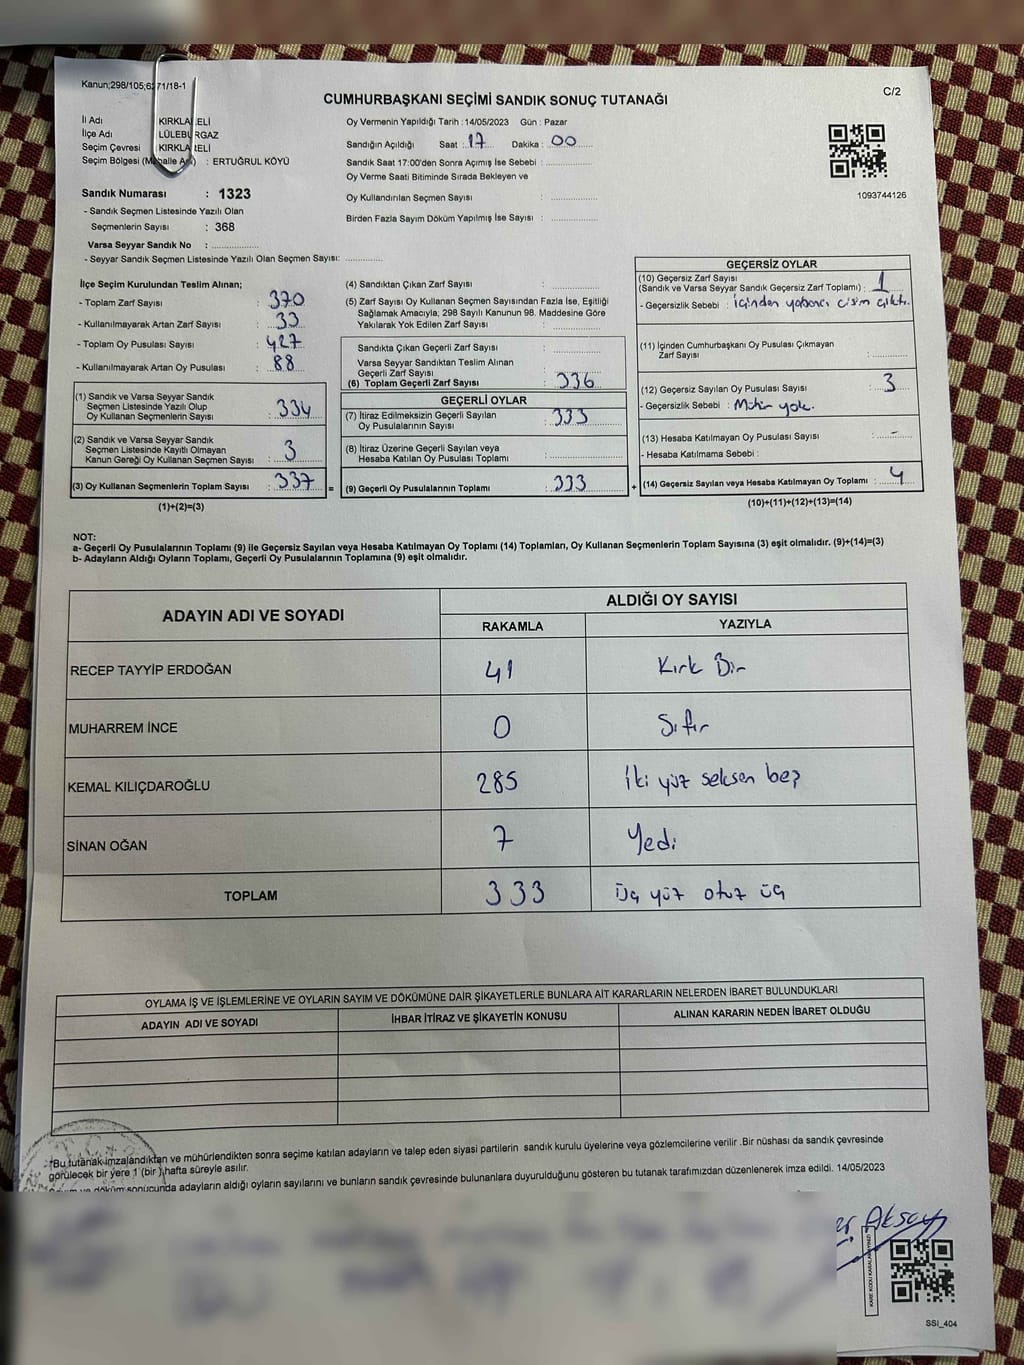 Kanun;298/105;6271/18-1
C/2
CUMHURBAŞKANI SEÇİMİ SANDIK SONUÇ TUTANAĞI
İl Adı KIRKLARELİ
İlçe Adı LÜLEBURGAZ
Seçim Çevresi KIRKLARELİ
Seçim Bölgesi (Mahalle Adı) : ERTUĞRUL KÖYÜ
Sandık Numarası : 1323
- Sandık Seçmen Listesinde Yazılı Olan
Seçmenlerin Sayısı : 368
Varsa Seyyar Sandık No :
- Seyyar Sandık Seçmen Listesinde Yazılı Olan Seçmen Sayısı:
Oy Vermenin Yapıldığı Tarih : 14/05/2023 Gün : Pazar
Sandığın Açıldığı Saat : 17 Dakika : 00
Sandık Saat 17:00'den Sonra Açımış İse Sebebi :
Oy Verme Saati Bitiminde Sırada Bekleyen ve
Oy Kullandırılan Seçmen Sayısı :
Birden Fazla Sayım Döküm Yapılmış İse Sayısı :
1093744126
İlçe Seçim Kurulundan Teslim Alınan;
- Toplam Zarf Sayısı : 370
- Kullanılmayarak Artan Zarf Sayısı : 33
- Toplam Oy Pusulası Sayısı : 427
- Kullanılmayarak Artan Oy Pusulası : 88
(1) Sandık ve Varsa Seyyar Sandık
Seçmen Listesinde Yazılı Olup
Oy Kullanan Seçmenlerin Sayısı : 334
(2) Sandık ve Varsa Seyyar Sandık
Seçmen Listesinde Kayıtlı Olmayan
Kanun Gereği Oy Kullanan Seçmen Sayısı : 3
(3) Oy Kullanan Seçmenlerin Toplam Sayısı : 337
(1)+(2)=(3)
=
(4) Sandıktan Çıkan Zarf Sayısı :
(5) Zarf Sayısı Oy Kullanan Seçmen Sayısından Fazla İse, Eşitliği
Sağlamak Amacıyla, 298 Sayılı Kanunun 98. Maddesine Göre
Yakılarak Yok Edilen Zarf Sayısı :
Sandıkta Çıkan Geçerli Zarf Sayısı :
Varsa Seyyar Sandıktan Teslim Alınan
Geçerli Zarf Sayısı :
(6) Toplam Geçerli Zarf Sayısı : 336
GEÇERLİ OYLAR
(7) İtiraz Edilmeksizin Geçerli Sayılan
Oy Pusulalarının Sayısı : 333
(8) İtiraz Üzerine Geçerli Sayılan veya
Hesaba Katılan Oy Pusulası Toplamı :
(9) Geçerli Oy Pusulalarının Toplamı : 333
+
GEÇERSİZ OYLAR
(10) Geçersiz Zarf Sayısı
(Sandık ve Varsa Seyyar Sandık Geçersiz Zarf Toplamı) : 1
- Geçersizlik Sebebi : İçinden yabancı cisim çıktı.
(11) İçinden Cumhurbaşkanı Oy Pusulası Çıkmayan
Zarf Sayısı :
(12) Geçersiz Sayılan Oy Pusulası Sayısı : 3
- Geçersizlik Sebebi : Mühür yok.
(13) Hesaba Katılmayan Oy Pusulası Sayısı : -
- Hesaba Katılmama Sebebi :
(14) Geçersiz Sayılan veya Hesaba Katılmayan Oy Toplamı : 4
(10)+(11)+(12)+(13)=(14)
NOT:
a- Geçerli Oy Pusulalarının Toplamı (9) ile Geçersiz Sayılan veya Hesaba Katılmayan Oy Toplamı (14) Toplamları, Oy Kullanan Seçmenlerin Toplam Sayısına (3) eşit olmalıdır. (9)+(14)=(3)
b- Adayların Aldığı Oyların Toplamı, Geçerli Oy Pusulalarının Toplamına (9) eşit olmalıdır.
ADAYIN ADI VE SOYADI
ALDIĞI OY SAYISI
RAKAMLA YAZIYLA
RECEP TAYYİP ERDOĞAN 41 Kırk Bir
MUHARREM İNCE 0 Sıfır
KEMAL KILIÇDAROĞLU 285 İki yüz seksen beş
SİNAN OĞAN 7 Yedi
TOPLAM 333 üç yüz otuz üç
OYLAMA İŞ VE İŞLEMLERİNE VE OYLARIN SAYIM VE DÖKÜMÜNE DAİR ŞİKAYETLERLE BUNLARA AİT KARARLARIN NELERDEN İBARET BULUNDUKLARI
ADAYIN ADI VE SOYADI İHBAR İTİRAZ VE ŞİKAYETİN KONUSU ALINAN KARARIN NEDEN İBARET OLDUĞU
*Bu tutanak imzalandıktan ve mühürlendikten sonra seçime katılan adayların ve talep eden siyasi partilerin sandık kurulu üyelerine veya gözlemcilerine verilir .Bir nüshası da sandık çevresinde
görülecek bir yere 1 (bir ) hafta süreyle asılır.
ve döküm sonucunda adayların aldığı oyların sayılarını ve bunların sandık çevresinde bulunanlara duyurulduğunu gösteren bu tutanak tarafımızdan düzenlenerek imza edildi. 14/05/2023
Aksoy
SSİ_404